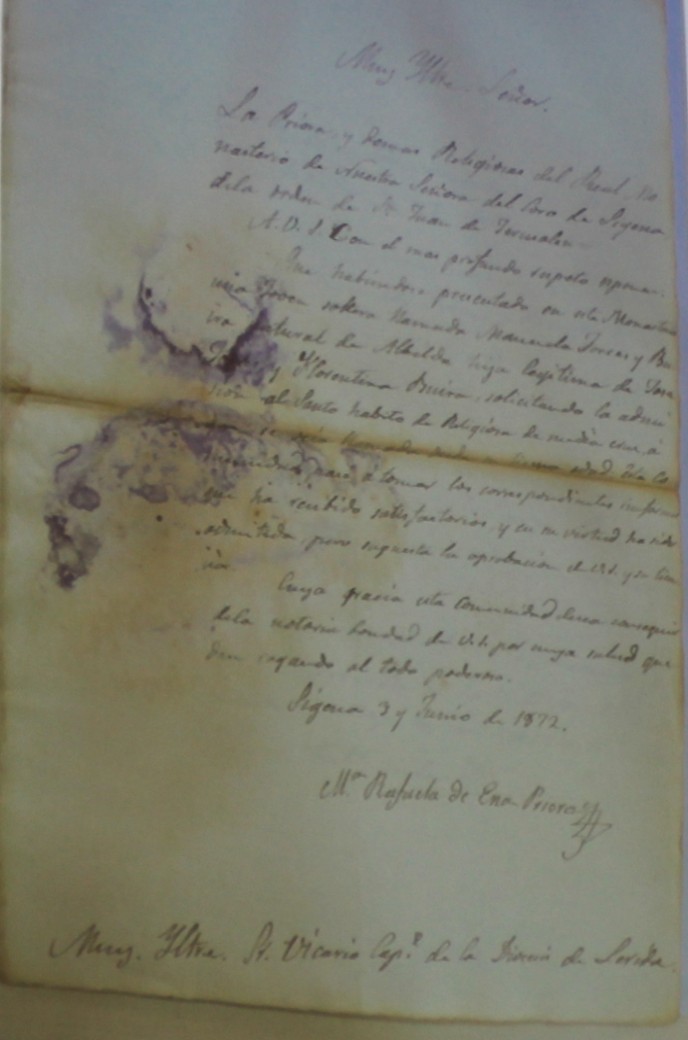 Muy Yltre. Señor.
La Priora y demas Religiosas del Real Mo
nasterio de Nuestra Señora del Coro de Sigena
dela orden de Sn Juan de Jerusalen
A. V. S. Con el mas profundo respeto esponen:
Que habiendose presentado en este Monaste
una Joven soltera llamada Manuela Torres y Bu
natural de Albelda hija legitima de Jose
y Florentina Buira, solicitando la admi
al Santo habito de Religiosa de media cruz, á
llamada desde su tierna edad. Esta Co
munidad pasó á tomar los correspondientes informes
que ha recibido satisfactorios, y en su virtud ha sido
admitida, pero supuesta la aprobacion de V.S. y su licen
cia.
Cuya gracia esta Comunidad desea conseguir
dela notoria bondad de V.S. por cuya salud que
dan rogando al todo poderoso.
Sigena 3 y Junio de 1872.
Mª Rafaela de Ena Priora
Muy. Yltre. Sr. Vicario Capr. de la Diocesis de Lerida.